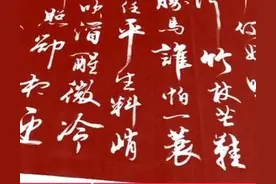 何妨
竹杖芒鞋
勝馬誰怕一蓑
任平生料峭
吹酒醒微冷
照卻相迎